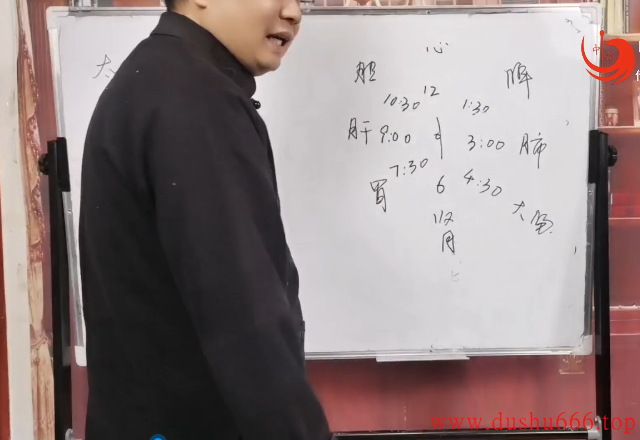 心
胆
脾
10:30 12 1:30
肝 9:00 3:00 肺
7:30 6 4:30
胃
大
肾
大
www.dushu666.top